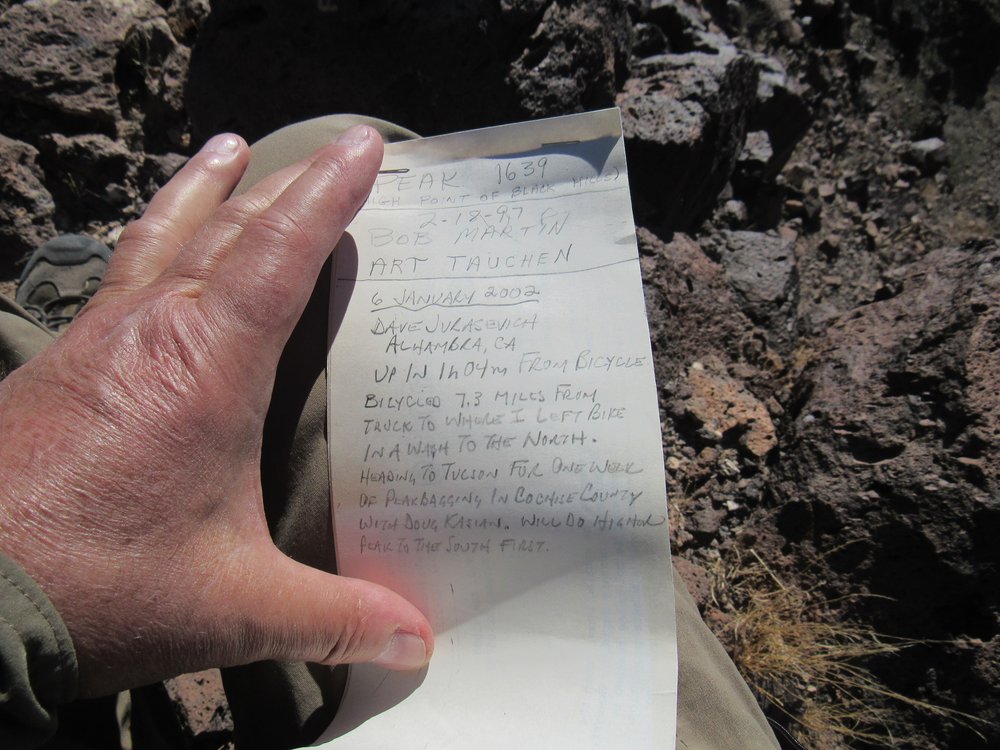 PEAK 1639
HIGH POINT OF BLACK HILLS)
2-18-97
BOB MARTIN
ART TAUCHEN
6 JANUARY 2002
DAVE JURASEVICH
ALHAMBRA, CA
UP IN 1h 04m FROM BICYCLE
BICYCLED 7.3 MILES FROM
TRUCK TO WHERE I LEFT BIKE
IN A WASH TO THE NORTH.
HEADING TO TUCSON FOR ONE WEEK
OF PEAKBAGGING IN COCHISE COUNTY
WITH DOUG KASIAN. WILL DO HIGHER
PEAK TO THE SOUTH FIRST.